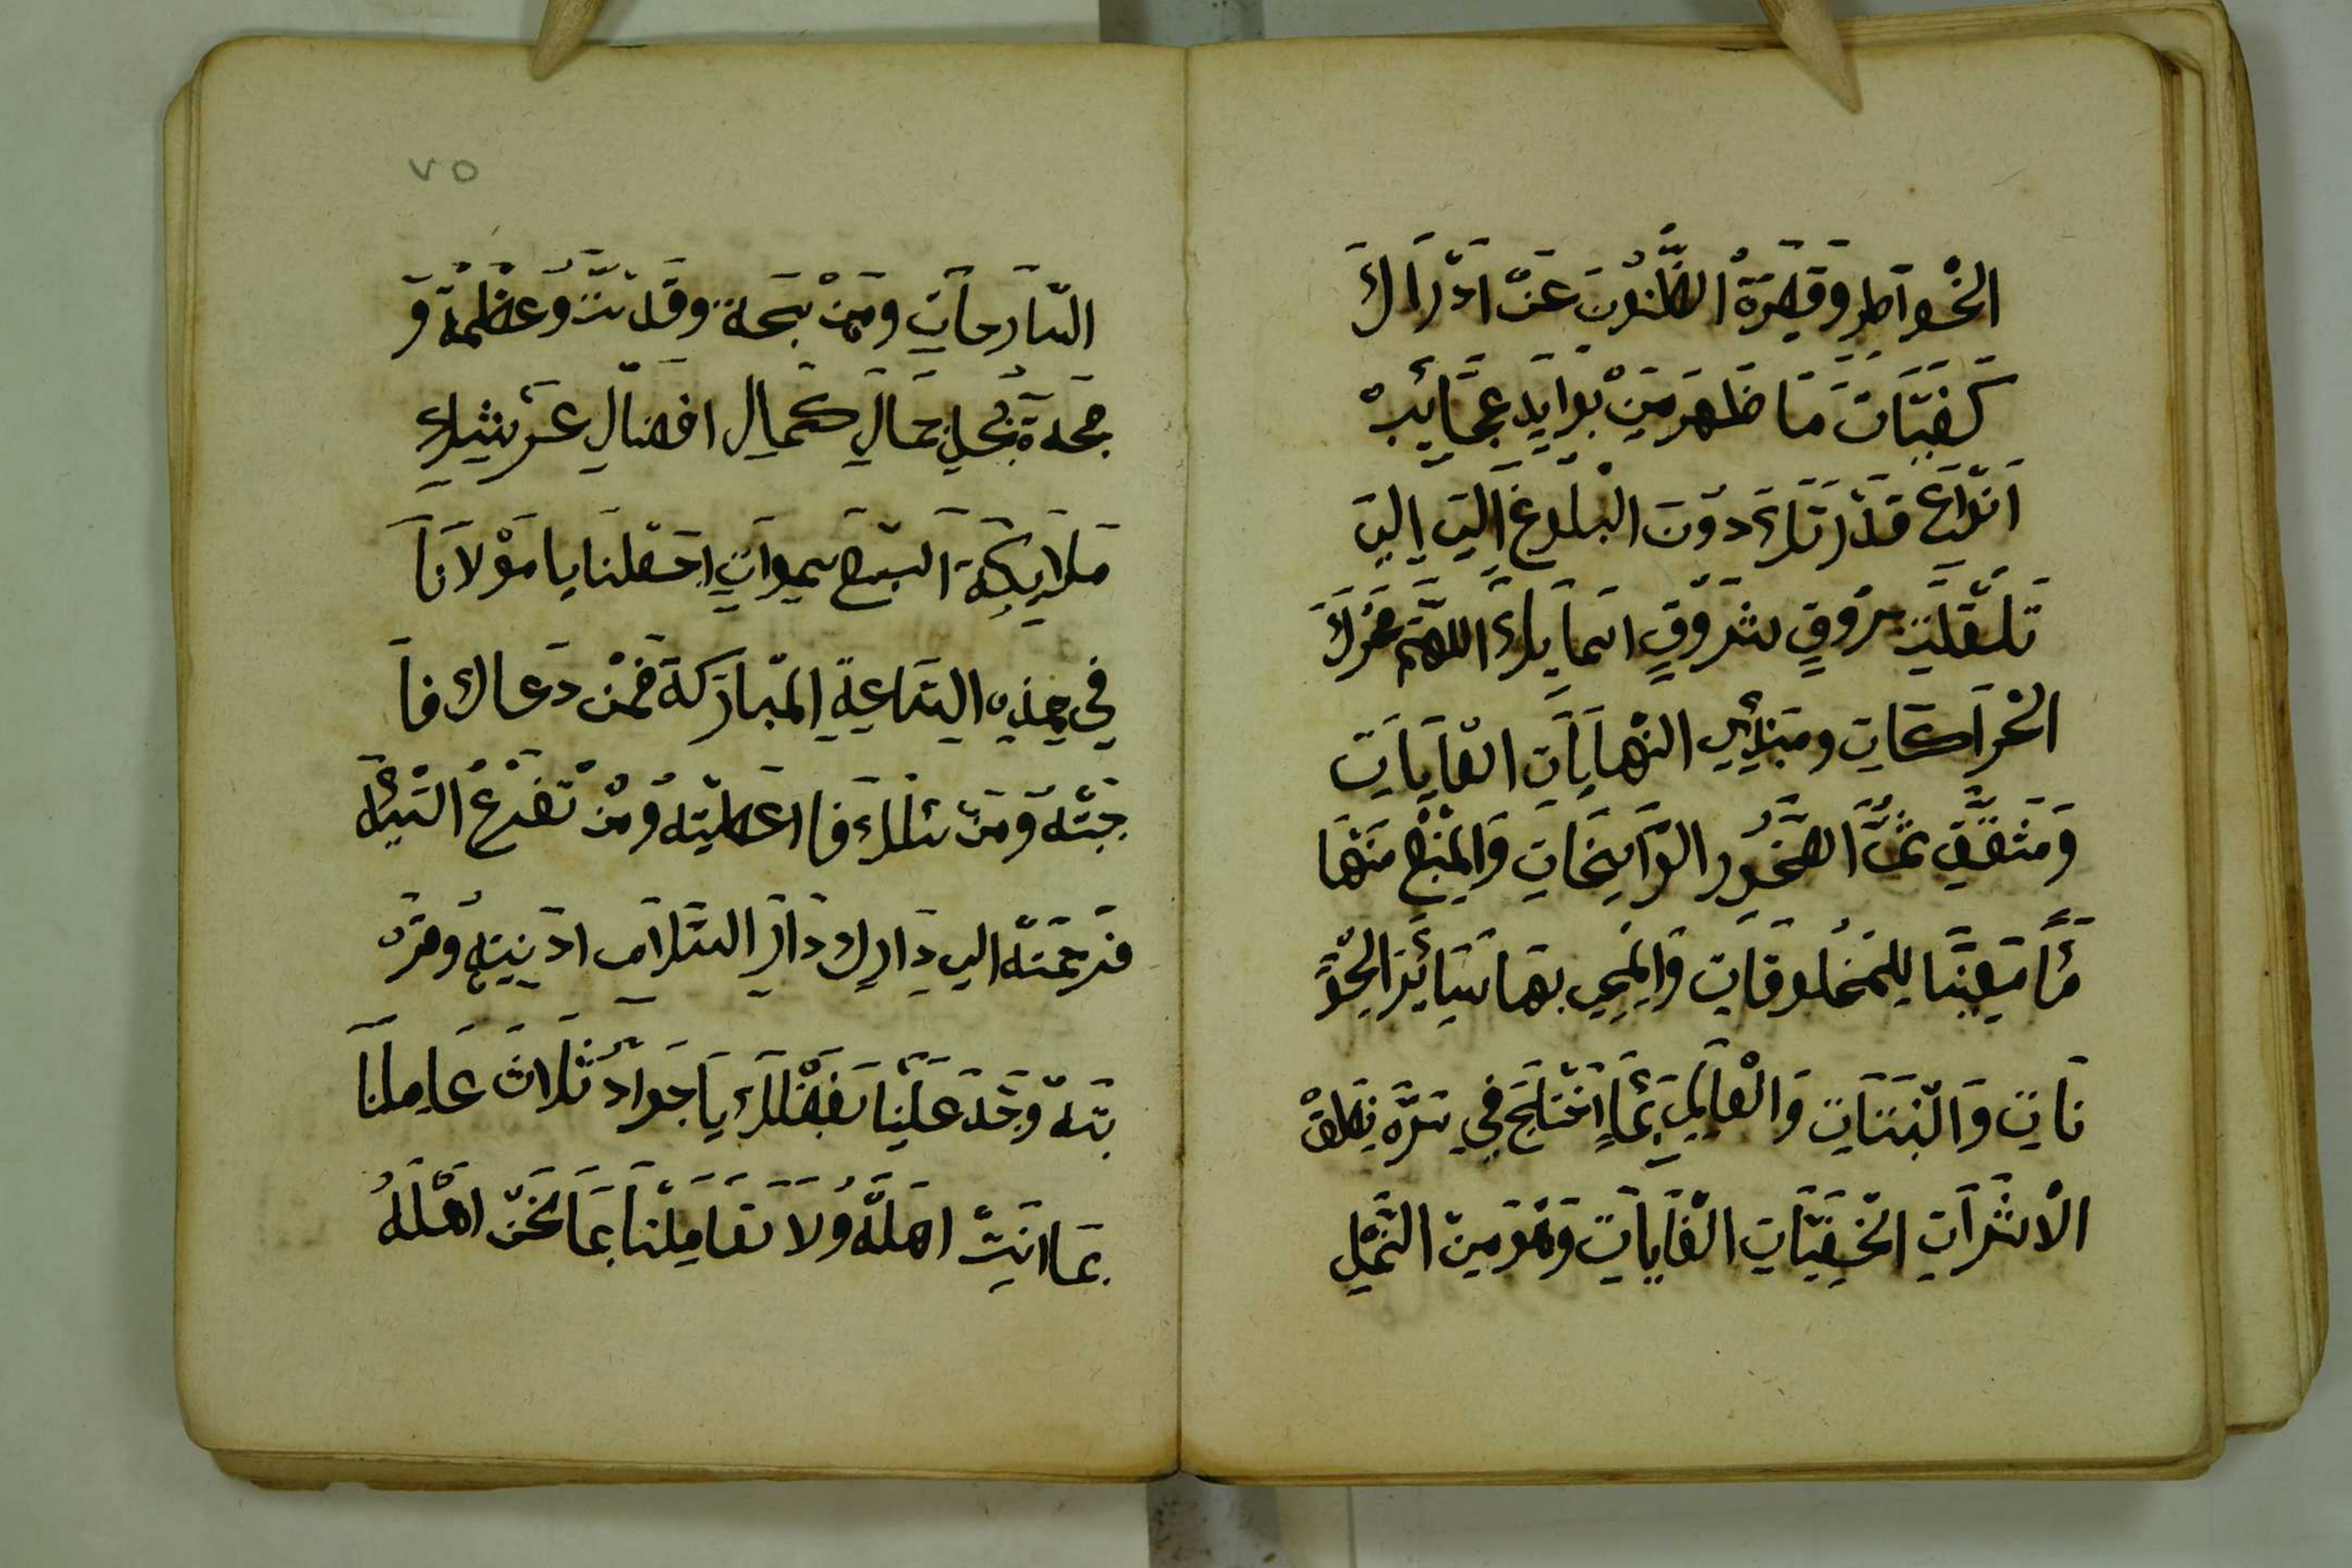 الخْواَطِرِ وَقَصِرَةْ الظُّنُونَ عَنْ ادْرَاكَ
كَيفِيَّاتَ مَا ظَهَرَ مَنْ بَوَايَدِ عجَايَبْ
اَنْوَاعِ قدْرَتَكَ دوُنَ البْلوُغَ اِلىَ اِلىَ
تَلَقلَتِ برُوقِ شرُوقٍ اسَمايكَ اللهَم محَركَ
الحْرَاكاتِ ومَبدِي النهْايَاتَ الغايَاتِ
وَمَشقق ثمَّ الصّخُورِ الرّاسِخاتِ وَالمنْبعَ مَنهَا
مَاً مَعِينَاً لِلمَخلُوقَاتِ وَالمحي بهَا سَايَر الحْيَوَ
نَاتِ وَالنّبَتَاتِ وَالعْالِم بِمَا اخْتَلَجَ فيِ سَرّهِ نَطْقَ
الاْشَرَاتِ الخْفِيّاتِ الغَاياتِ وَهوَ مِنَ النّمْلِ
٧٥
السّارحاتِ ومَنْ سبَحة وقَدسَتَ وَعظمُة وَ
مجَدة بجُلِ جمَالِ كمَالِ افضالِ عَرشِكَ
مَلاَيكةَ السّبَع سموَاتِ اجعَلنَا يا موْلاَنَا
في هِذهِ السَاعةِ المبَارَكة ممنْ دَعاكَ فاَ
جَبْتهُ وَمَنْ سئلكَ فا اعَطيَتهُ وَمَنْ تضَرعُ اليَكْ
فرَحمَتهُ اليِ دَارِكَ دَارِ السّلاَمِ ادَنيتهُ وقرْ
بَتهُ وجَدَ علَيْنا بفَضْلكَ يَا جَوادُ ثلاَثَ عَامِلنَا
بَما انَتْ اهَلهُ وُلاَ تعَامِلْنا بمَا نَحَنْ اهْلهُ